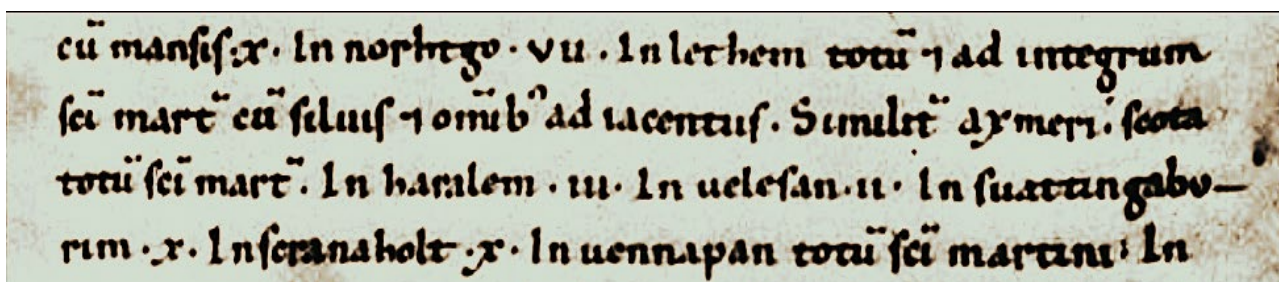 cū mansis·x· In norhtgo · vii · In lethem totū ⁊ ad integrum
sci̅ mart̄ cū siluis ⁊ omīb' ad iacentiis · Similit̄ axmeri · scota
totū sci̅ mart̄ · In haralem · iii · In uelesan · ii · In suattingabu–
rim · x · In scranaholt · x · In uennapan totū sci̅ martini · In